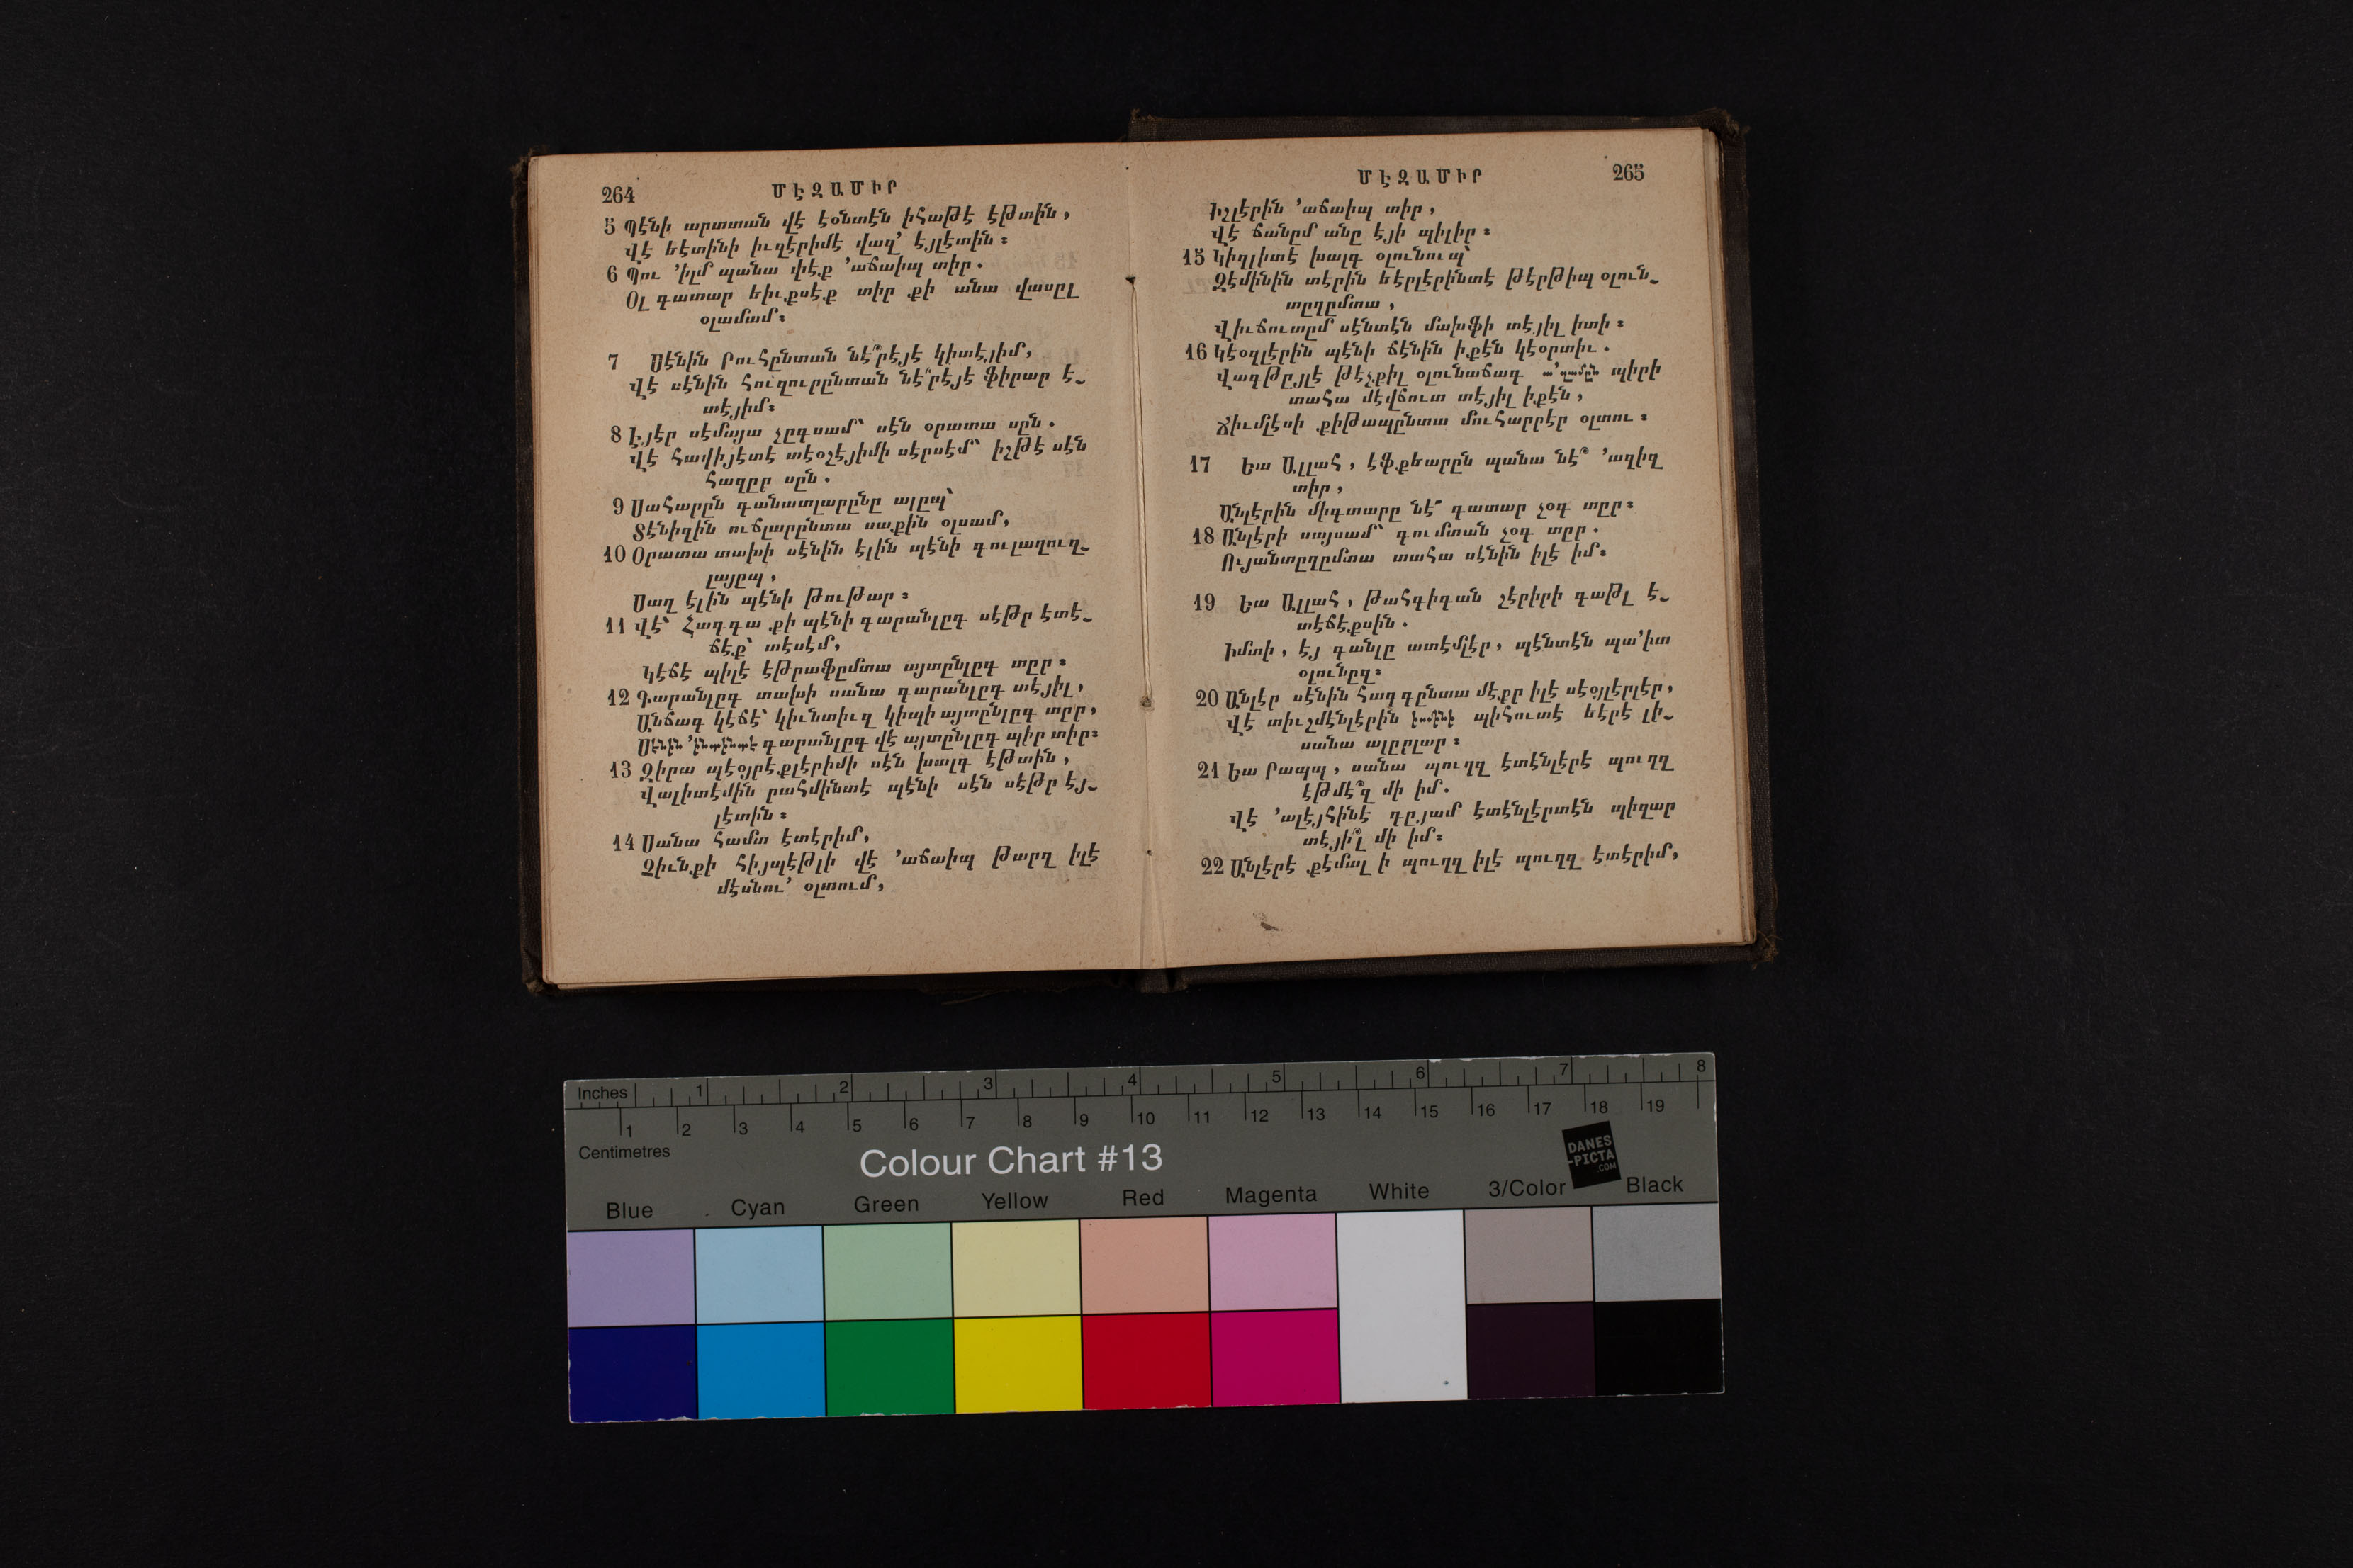 264 ՄԷԶԱՄԻՐ
5 Պէնի արտտան վէ էօնտէն իհաթէ էթտին,
Վէ եէտինի իւզէրիմէ վազ՚ էյլէտին։
6 Պու ՚իլմ պանա փէք ՚աճաիպ տիր.
Օլ գատար եիւքսէք տիր քի անա վասըլ
օլամամ։
7 Սէնին Րուհընտան նէ՞րէյէ կիտէյիմ,
Վէ սէնին հուզուրընտան նէ՞րէյէ ֆիրար է-
տէյիմ։
8 Էյէր սէմայա չըգսամ՝ սէն օրատա սըն.
Վէ հավիյէտէ տէօշէյիմի սէրսէմ՝ իշթէ սէն
հազըր սըն.
9 Սահարըն գանատլարընը ալըպ՝
Տէնիզին ուճլարընտա սաքին օլսամ,
10 Օրատա տախի սէնին էլին պէնի գուլաղուզ-
լայըպ,
Սաղ էլին պէնի թութար։
11 Վէ՝ Հագգա քի պէնի գարանլըգ սէթր էտէ-
ճէք՝ տէսէմ,
Կէճէ պիլէ էթրաֆըմտա այտընլըգ տըր։
12 Գարանլըգ տախի սանա գարանլըգ տէյիլ,
Անճագ կէճէ՝ կիւնտիւզ կիպի այտընլըգ տըր,
Սէնին ՚ինտինտէ գարանլըգ վէ այտընլըգ պիր տիր։
13 Զիրա պէօյրէքլէրիմի սէն խալգ էթտին,
Վալիտէմին րահմինտէ պէնի սէն սէթր էյ-
լէտին։
14 Սանա համտ էտէրիմ,
Չիւնքի հիյպէթլի վէ ՚աճաիպ թարզ իլէ
մէսնու՚ օլտում,
ՄԷԶԱՄԻՐ 265
Իշլէրին ՚աճաիպ տիր,
Վէ ճանըմ անը էյի պիլիր։
15 Կիզլիտէ խալգ օլունուպ՝
Զէմինին տէրին եէրլէրինտէ թէրթիպ օլուն-
տըղըմտա,
Վիւճուտըմ սէնտէն մախֆի տէյիլ իտի։
16 Կէօզլէրին պէնի ճէնին իքէն կէօրտիւ.
Վագթըյլէ թէշքիլ օլունաճագ ա՚զամըն պիրի
տահա մէվճուտ տէյիլ իքէն,
Ճիւմլէսի քիթապընտա մուհարրէր օլտու։
17 Եա Ալլահ, էֆքեարըն պանա նէ՞ ՚ազիզ
տիր,
Անլէրին միգտարը նէ՞ գատար չօգ տըր։
18 Անլէրի սայսամ՝ գումտան չօգ տըր.
Ույանտըղըմտա տահա սէնին իլէ իմ։
19 Եա Ալլահ, թահգիգան շէրիրի գաթլ է-
տէճէքսին.
Իմտի, էյ գանլը ատէմլէր, պէնտէն պա՚իտ
օլունըզ։
20 Անլէր սէնին հագգընտա մէքր իլէ սէօյլէրլէր,
Վէ տիւշմէնլէրին իսմինի պիհուտէ եէրէ լի-
սանա ալըրլար։
21 Եա Րապպ, սանա պուղզ էտէնլէրէ պուղզ
էթմէ՞զ մի իմ.
Վէ ՚ալէյհինէ գըյամ էտէնլէրտէն պիզար
տէյի՞լ մի իմ։
22 Անլէրէ քէմալ ի պուղզ իլէ պուղզ էտէրիմ,
Inches 1 2 3 4 5 6 7 8
1 2 3 4 5 6 7 8 9 10 11 12 13 14 15 16 17 18 19
Centimetres
Colour Chart #13
DANES
-PICTA
.COM
Blue Cyan Green Yellow Red Magenta White 3/Color Black